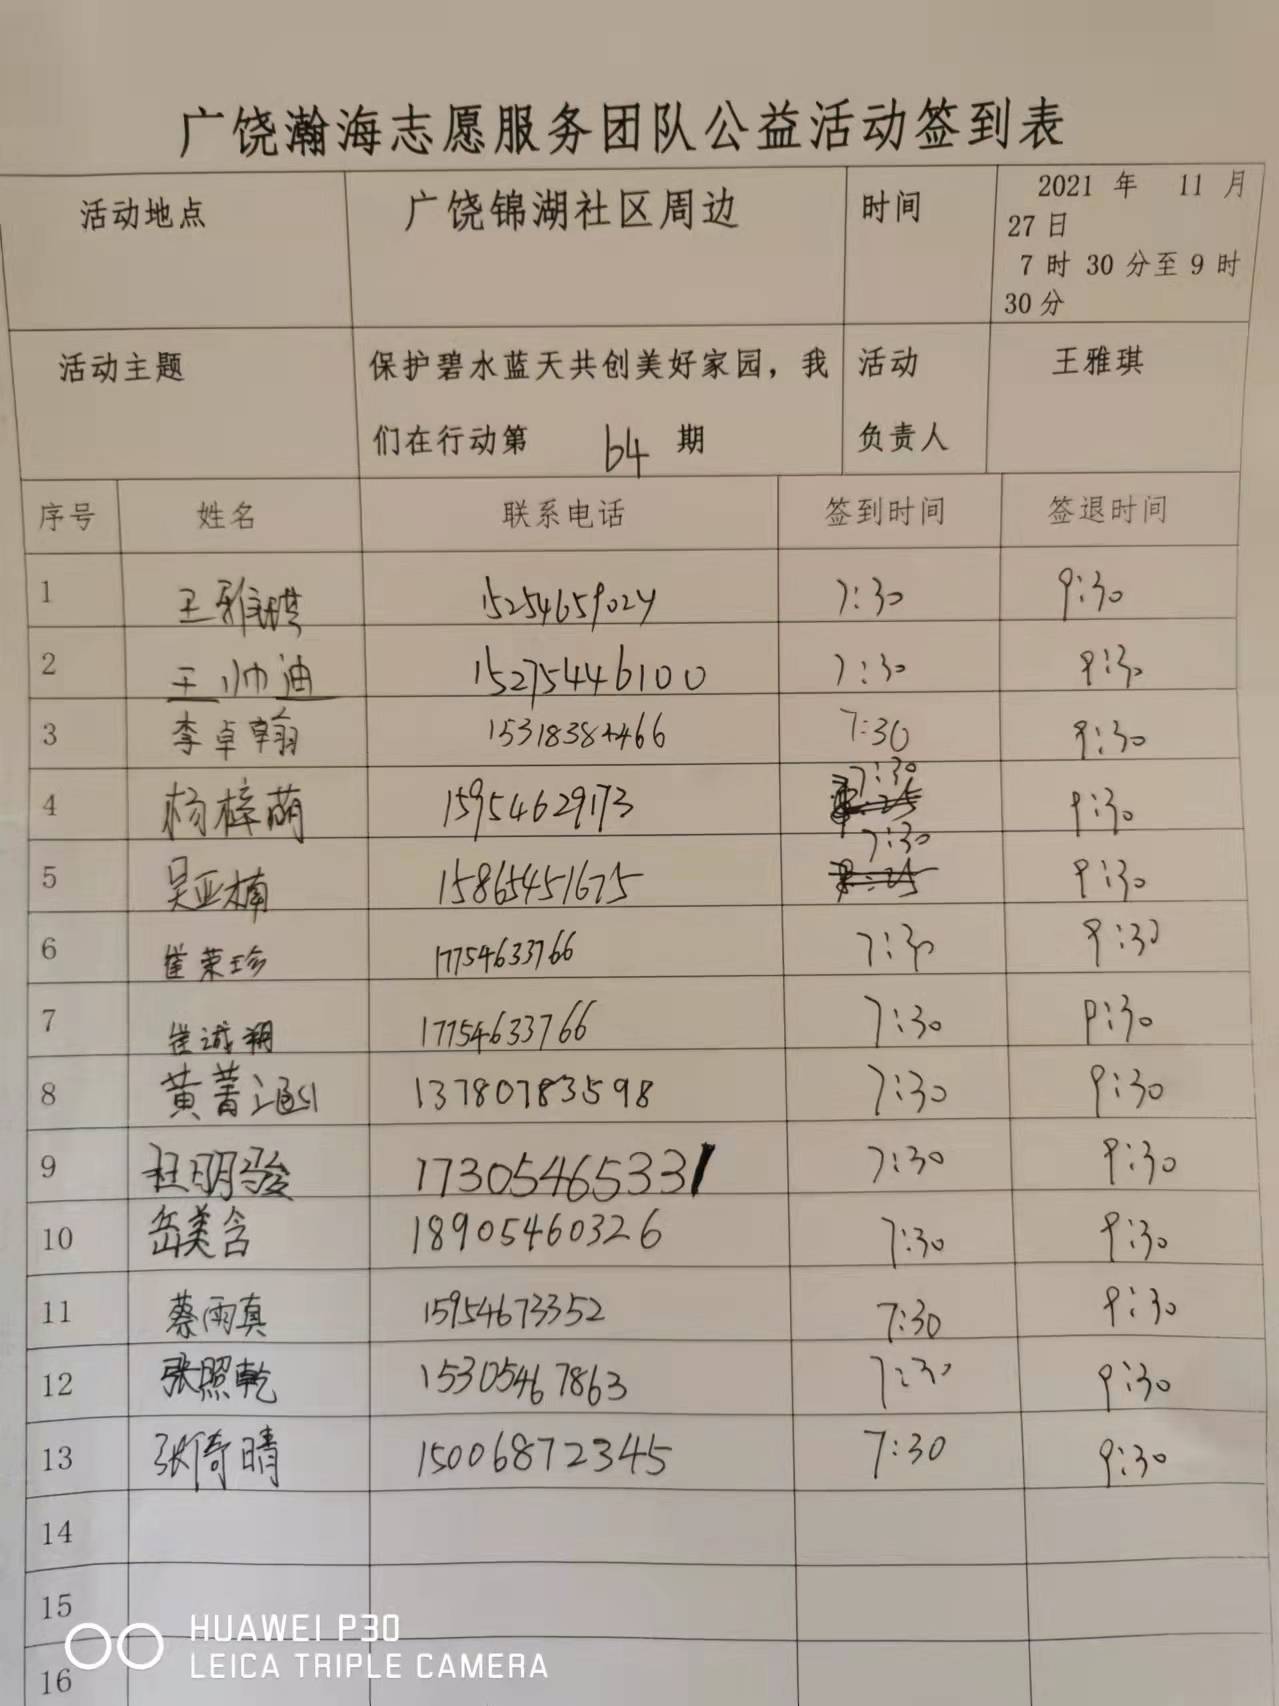 广饶瀚海志愿服务团队公益活动签到表
活动地点 广饶锦湖社区周边 时间 2021 年 11 月
27 日
7 时 30 分至 9 时
30 分
活动主题 保护碧水蓝天共创美好家园，我 活动 王雅琪
们在行动第 64 期 负责人
序号 姓名 联系电话 签到时间 签退时间
1 王雅琪 15254659024 7:30 9:30
2 王帅迪 15275446100 7:30 9:30
3 李卓翰 7:30 9:30
7:30
4 杨梓萌 15954629173 9:30
7:30
5 吴亚楠 15865451675 9:30
6 崔荣珍 17754633766 7:30 9:30
7 崔诚翔 17754633766 7:30 9:30
8 黄菁 13780783598 7:30 9:30
9 杜明骏 17305465331 7:30 9:30
10 岳美含 18905460326 7:30 9:30
11 蔡雨真 15954673352 7:30 9:30
12 张照乾 15305467863 7:30 9:30
13 张倚晴 15006872345 7:30 9:30
14
15
16
HUAWEI P30
LEICA TRIPLE CAMERA